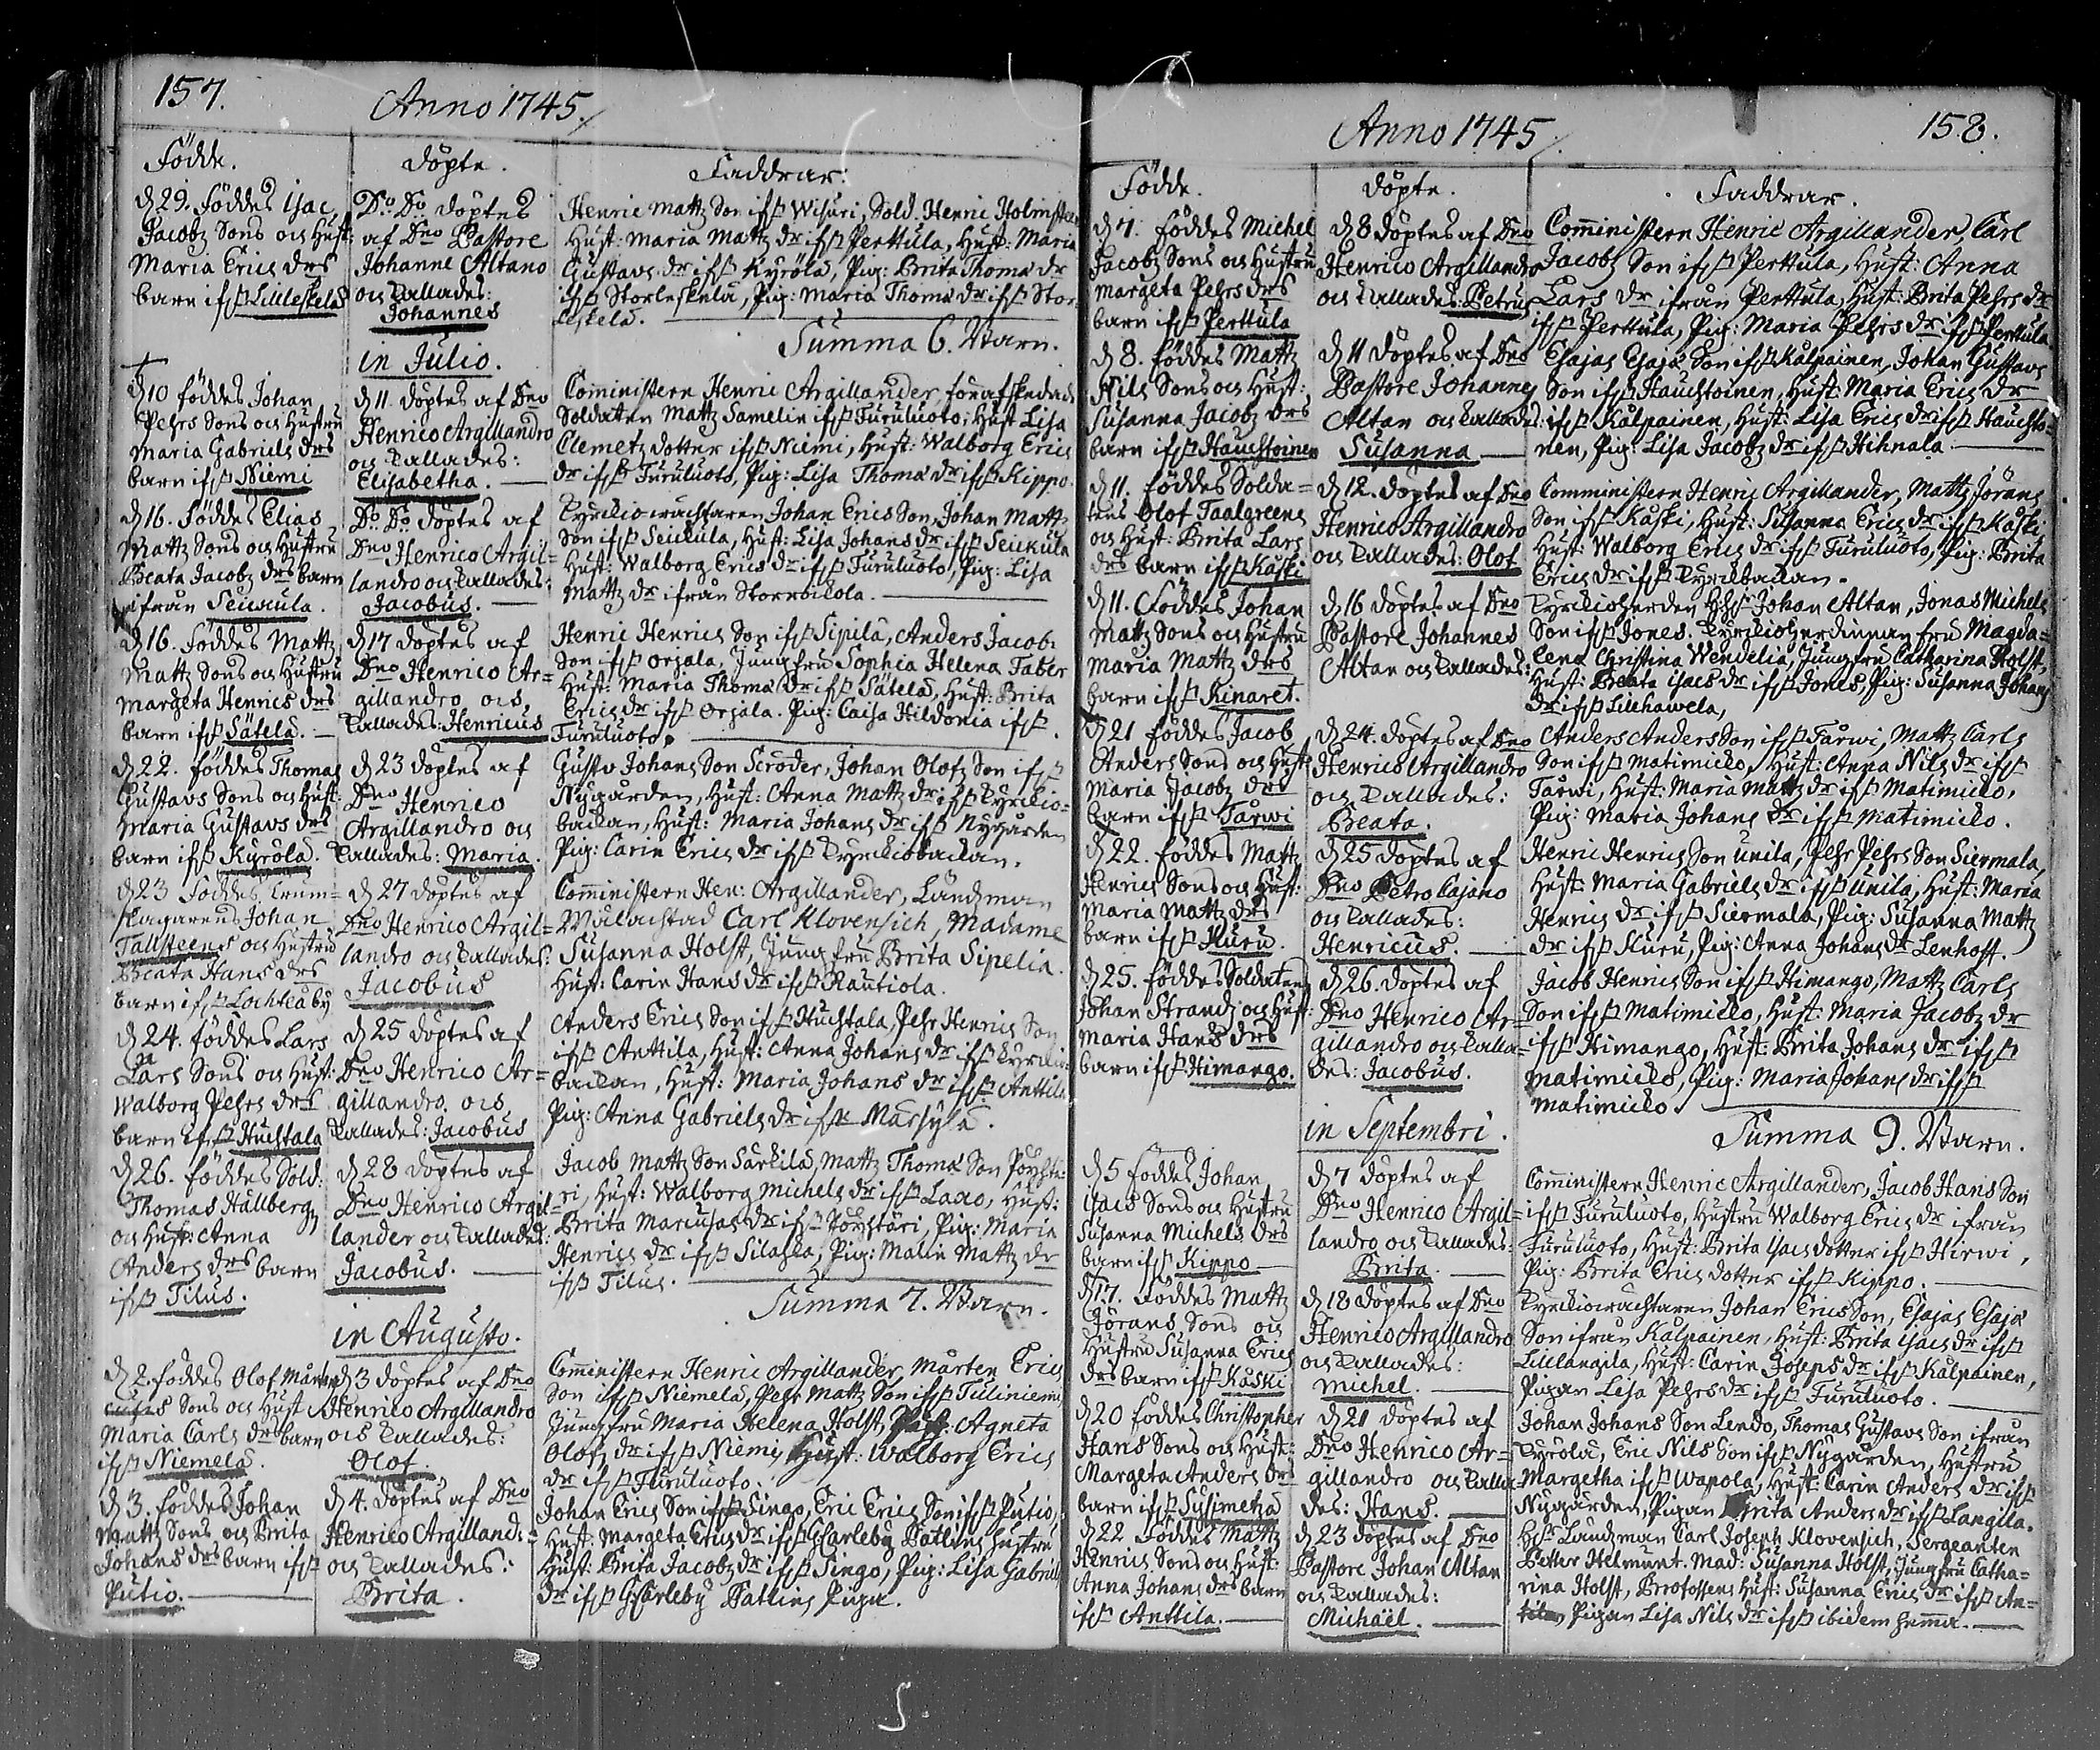 157.
Anno 1745.
Födde.
döpte.
Faddrar:
d 29. föddes Isac
Jacobz Sons och Hust:
Maria Erics drs
barn ifrå Lilleskelä
Do Do döptes
af Dno Pastore
Johanne Altano
och kallades:
Johannes
Henric Mattz Son ifrå Wisuri, Sold. Henric Holmsteen
Hust: Maria Mattz dr ifrå Perttula, Hust: Maria
Gustavs dr ifrå Kyrölä, Pig: Brita Thomæ dr
ifrå Storleskelä, Pig: Maria Thomæ dr ifrå Stor
leskelä.
Summa 6. Barn.
in Julio.
d 10 föddes Johan
Pehrs Sons och Hustru
Maria Gabriels drs
barn ifrå Niemi
d 11. döptes af Dno
Henrico Argillandro
och kallades:
Elisabetha.
Comministern Henric Argillander, förafskedade
Soldatten Mattz Samelin ifrå Furuluoto, Hust Lisa
Clemetz dotter ifrå Niemi, Hust: Walborg Erics
dr ifrå Furuluoto, Pig: Lisa Thomæ dr ifrå Kippo.
d 16. föddes Elias
Mattz Sons och Hustru
Beata Jacobz drs barn
ifrån Seikula.
Do Do döptes af
Dno Henrico Argil=
landro och kallades:
Jacobus.
Kyrkiowachtaren Johan Erics Son, Johan Mattz
Son ifrå Seikula, Hust: Lisa Johans dr ifrå Seikula
Hust: Walborg Erics dr ifrå Furuluoto, Pig: Lisa
Mattz dr ifrån Storroikola.
d 16. föddes Mattz
Mattz Sons och Hustru
Margeta Henrics drs
barn ifrå Sätelä.
d 17 döptes af
Dno Henrico Ar=
gillandro och
kallades: Henricus
Henric Henrics Son ifrå Sipilä, Anders Jacobz
Son ifrå Orjala, Jungfru Sophia Helena Faber
Hust: Maria Thomæ dr ifrå Sätelä, Hust: Brita
Erics dr ifrå Orjala. Pig: Caisa Hildonia ifrå
Furuluoto.
d 22. föddes Thomas
Gustavs Sons och Hust:
Maria Gustavs drs
barn ifrå Kyrölä.
d 23 döptes af
Dno Henrico
Argillandro och
kallades: Maria.
Gustv Johans Son Scröder, Johan Olofz Son ifrå
Nygården, Hust: Anna Mattz dr ifrå Kyrkio=
backan, Hust: Maria Johans dr ifrå Nygården
Pig: Carin Erics dr ifrå Kyrkiobackan.
d 23 föddes Trum=
slagarens Johan
Tallsteens och Hustru
Beata Hans drs
barn ifrå Lochteåby
d 27 döptes af
Dno Henrico Argil=
landro och kallades:
Jacobus
Comministern Hen: Argillander, Ländsman
Wälachtad Carl Klovensich, Madame
Susanna Holst, Jungfru Brita Sipelia.
Hust: Carin Hans dr ifrå Rautiola.
d 24. föddes Lars
Lars Sons och Hust:
Walborg Pehrs drs
barn ifrå Huchtala
d 25 döptes af
Dno Henrico Ar=
gillandro och
kallades: Jacobus
Anders Erics Son ifrå Huchtala, Pehr Henrics Son
ifrå Anttila, Hust: Anna Johans dr ifrå Kyrkio
backan, Hust: Maria Johans dr ifrå Anttila
Pig: Anna Gabriels dr ifrå Marsylä.
d 26. föddes Sold:
Thomas Hällbergz
och Hust: Anna
Anders drs barn
ifrå Tilus.
d 28 döptes af
Dno Henrico Argil=
lander och kallades:
Jacobus.
Jacob Mattz Son Särkilä, Mattz Thomæ Son Pöystä=
ri, Hust: Walborg Michels dr ifrå Laxo, Hust:
Brita Marcusas dr ifrå Pöystäri, Pig: Maria
Henrics dr ifrå Silaska, Pig: Malin Mattz dr
ifrå Tilus.
Summa 7. Barn.
in Augusto.
d 2. föddes Olof Mårten
Sons och Hust
Maria Carls dr barn
ifrå Niemelä.
d 3 döptes af Dno
Henrico Argillandro
och kallades:
Olof.
Comministern Henric Argillander, Mårten Erics
Son ifrå Niemelä, Pehr Mattz Son ifrå Tiliniemi
Jungfru Maria Helena Holst, Agneta
Olofz dr ifrå Niemi, Hust: Walborg Erics
dr ifrå Furuluoto.
d 3. föddes Johan
Mattz Sons och Brita
Johans drs barn ifrå
Putio.
d 4. döptes af Dno
Henrico Argillandr=
och kallades:
Brita.
Johan Erics Son ifrå Singo, Eric Erics Son ifrå Putio,
Hust: Margeta Erics dr ifrå GCarleby Patlins hustru
Hust: Brita Jacobz dr ifrå Singo, Pig: Lisa Gabriels
dr ifrå GCarleby Patlins Piga.
Anno 1745.
158.
Födde.
döpte.
Faddrar.
d 7. föddes Michel
Jacobz Sons och Hustru
Margeta Pehrs drs
barn ifrå Perttula
d 8 döptes af Dno
Henrico Argillandro
och kallades: Petrus
Comministern Henric Argillander, Carl
Jacobz Son ifrå Perttula, Hust: Anna
Lars dr ifrån Perttula, Hust: Brita Pehrs dr
ifrå Perttula, Pig: Maria Pehrs dr ifrå Perttula
d 8. föddes Mattz
Nils Sons och Hust:
Susanna Jacobz drs
barn ifrå Hauchtoinen
d 11 döptes af Dno
Pastore Johannes
Altan och kallades:
Susanna
Esajas Esajæ Son ifrå Kälpainen, Johan Gustavs
Son ifrå Hauchtoinen, Hust: Maria Erics dr
ifrå Kälpainen, Hust: Lisa Erics dr ifrå Hauchto=
nen, Pig: Lisa Jacobz dr ifrå Hihnala
d 11. föddes Solda=
tens Olof Taalgreens
och Hust: Brita Lars
drs barn ifrå Kaski
d 12. döptes af Dno
Henrico Argillandro
och kallades: Olof
Comministern Henric Argillander, Mattz Jörans
Son ifrå Kaski, Hust: Susanna Erics dr ifrå Kaski
Hust: Walborg Erics dr ifrå Furuluoto, Pig: Brita
Erics dr ifrå Kyrckbackan.
d 11. föddes Johan
Mattz Sons och Hustru
Maria Mattz drs
barn ifrå Kinaret.
d 16 döptes af Dno
Pastore Johannes
Altan och kallades:
Kyrckioherden Johan Altan, Jonas Michels
Son ifrå Jones. Kyrckioherdinnan fru Magda=
lena Christina Wendelia, Jungfru Catharina Holst,
Hust: Beata Isacs dr ifrå Jones, Pig: Susanna Johans
dr ifrå Lillhawela,
d 21 föddes Jacob
Anders Sons och Hust:
Maria Jacobz drs
barn ifrå Tarwi
d 24. döptes af Dno
Henrico Argillandro
och kallades:
Beata.
Anders Anders Son ifrå Tarwi, Mattz Carls
Son ifrå Matimicko, Hust: Anna Nils dr ifrå
Tarwi, Hust: Maria Mattz dr ifrå Matimicko,
Pig: Maria Johans dr ifrå Matimicko.
d 22. föddes Mattz
Henrics Sons och Hust:
Maria Mattz drs
barn ifrå Huru.
d 25 döptes af
Dno Petro Cajano
och kallades:
Henricus.
Henric Henrics Son Unila, Pehr Pehrs Son Siermala,
Hust: Maria Gabriels dr ifrå Unila, Hust: Maria
Henrics dr ifrå Siermala, Pig: Susanna Mattz
dr ifrå Huru, Pig: Anna Johans dr Lenhoff.
d 25. föddes Soldatens
Johan Strandz och Hust:
Maria Hans drs
barn ifrå Himango.
d 26. döptes af
Dno Henrico Ar=
gillandro och kalla=
des: Jacobus.
Jacob Henrics Son ifrå Himango, Mattz Carls
Son ifrå Matimicko, Hust: Maria Jacobz dr
ifrå Himango, Hust: Brita Johans dr ifrå
Matimicko, Pig: Maria Johans dr ifrå
Matimicko.
Summa 9. Barn.
in Septembri.
d 5 föddes Johan
Isacs Sons och Hustru
Susanna Michels drs
barn ifrå Kippo
d 7 döptes af
Dno Henrico Argil=
landro och kallades:
Brita.
Comministern Henric Argillander, Jacob Hans Son
ifrå Furuluoto, Hustru Walborg Erics dr ifrån
Furuluoto, Hust: Brita Isacs dotter ifrå Hirwi,
Pig: Brita Erics dotter ifrå Kippo.
d 17. föddes Mattz
Jörans Sons och
Hustru Susanna Erics
drs barn ifrå Kaski
d 18 döptes af Dno
Henrico Argillandro
och kallades:
Michel.
Kyrckiowachtaren Johan Erics Son, Esajas Esajæ
Son ifrån Kälpainen, Hust: Brita Isacs dr ifrå
Lillängila, Hust: Carin Joseps dr ifrå Kälpainen,
Pigan Lisa Pehrs dr ifrå Furuluoto.
d 20 föddes Christopher
Hans Sons och Hust:
Margeta Anders drs
barn ifrå Sysimetzä
d 21 döptes af
Dno Henrico Ar=
gillandro och kalla
des: Hans.
Johan Johans Son Lendo, Thomas Gustavs Son ifrån
Kyrölä, Eric Nils Son ifrå Nygården, Hustru
Margetha ifrå Wapola, Hust: Carin Anders dr ifrå
Nygården, Pigan Brita Anders dr ifrå Langila.
d 22 föddes Mattz
Henrics Sons och Hust:
Anna Johans drs barn
ifrå Anttila.
d 23 döptes af Dno
Pastore Johan Altan
och kallades:
Michaël.
Ländsman Carl Joseph Klovensich, Sergeanten
Petter Helmunt. Mad: Susanna Holst, Jungfru Catha=
rina Holst, Brofossens Hust: Susanna Erics dr ifrå An=
tila, Pigan Lisa Nils dr ifrå ibidem hemma.